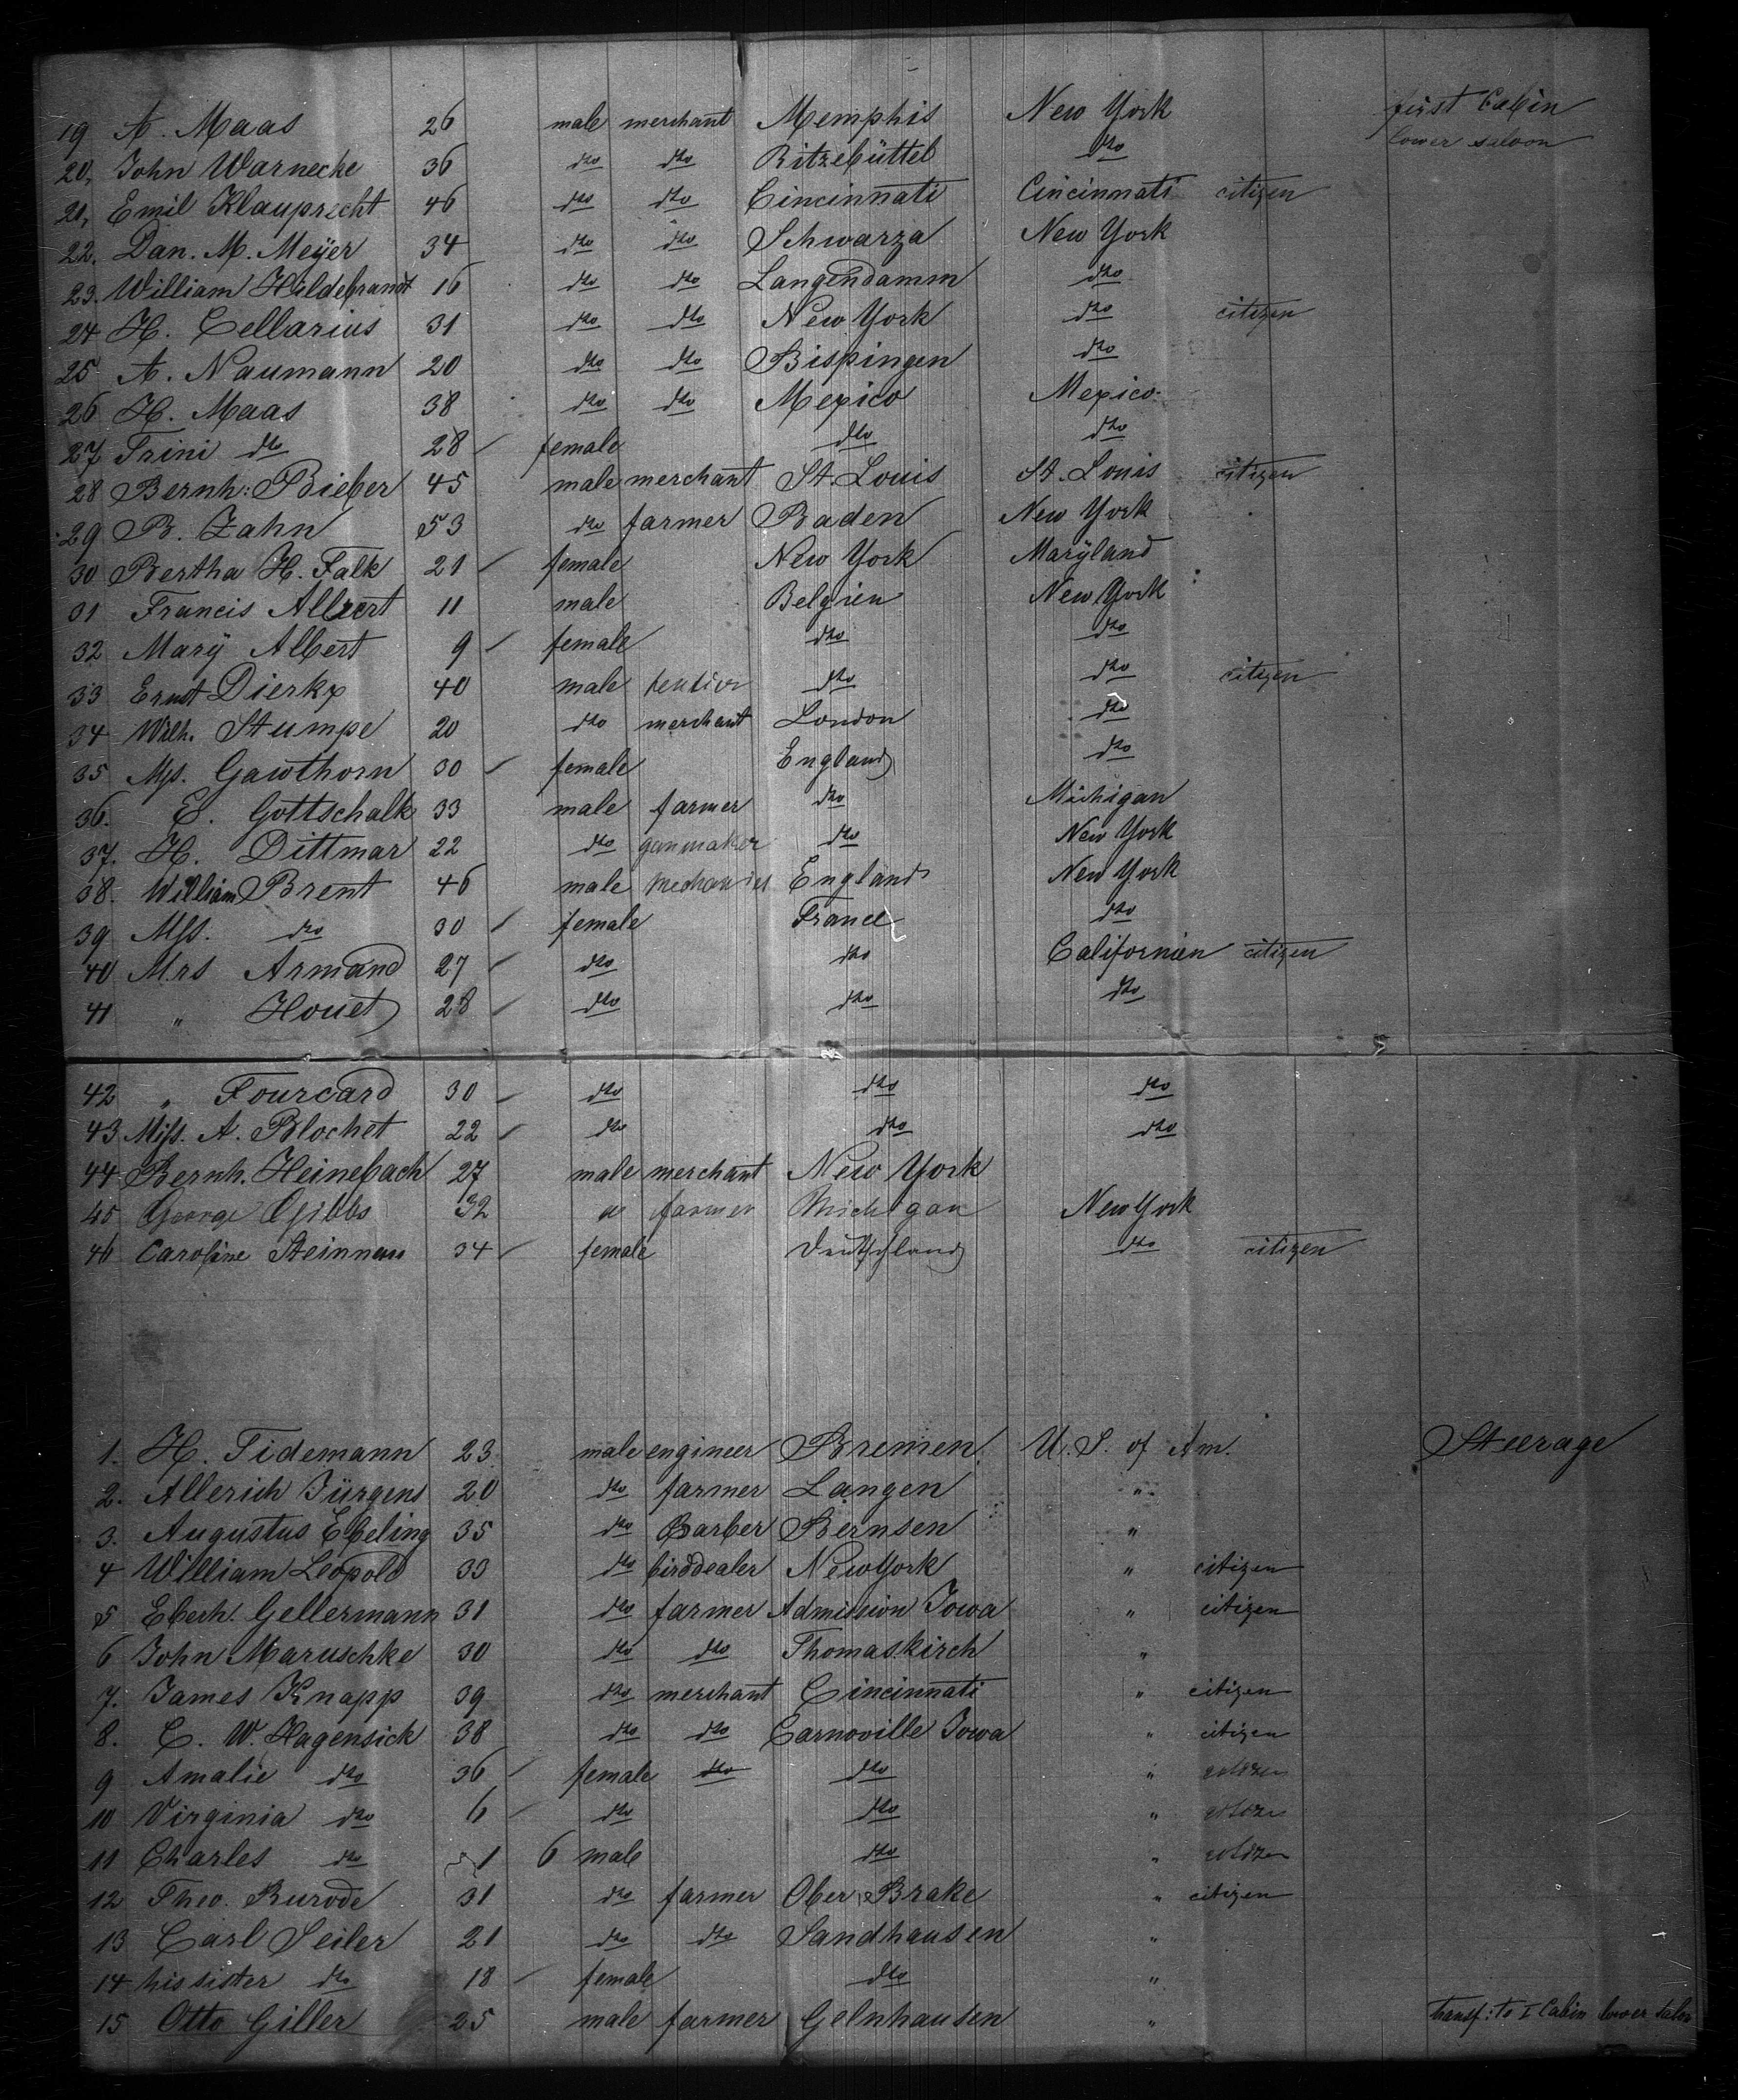 19 A. Maas 26 male merchant Memphis New York first Cabin
lower saloon
20, John Warnecke 36 dto dto Ritzebüttel dto
21, Emil Klauprecht 46 dto dto Cincinnati Cincinnati citizen
22. Dan. M. Meÿer 34 dto dto Schwarza New York
23. William Hildebrandt 16 dto dto Langendamm dto
24 H. Cellarius 31 dto dto New York dto citizen
25 A. Naumann 20 dto dto Bispingen dto
26 H. Maas 38 dto dto Mexico Mexico.
27 Trini dto 28 female dto dto
28 Bernh: Bieber 45 male merchant St. Louis St. Louis citizen
29 B. Zahn 53 dto farmer Baden New York
30 Bertha H. Falk 21 female New York Marÿland
31 Francis Albert 11 male Belgien New York
32 Marÿ Albert 9 female dto dto
33 Ernst Dierkx 40 male dto dto citizen
34 Wilh. Stumpe 20 dto merchant London dto
35 Mss. Gawthorn 30 female England dto
36. E. Gottschalk 33 male farmer dto Michigan
37. H. Dittmar 22 dto gunmaker dto New York
38. William Brent 46 male England New York
39 Mss. dto 30 female France dto
40 Mrs Armand 27 dto dto Californien citizen
41 " Houet 28 dto dto dto
42 " Fourcard 30 dto dto dto
43 Miss. A. Blochet 22 dto dto dto
44 Bernh. Heinebach 27 male merchant New York
45 George Gibbs 32 " farmer Michigan New York
46 Caroline 34 female Deutschland dto citizen
1. H. Tidemann 23 male engineer Bremen U. S. of Am. Steerage
2. Allerich Jürgens 20 dto farmer Langen "
3. Augustus Ebeling 35 dto Barber Bernsen "
4 William Leopold 33 dto birddealer New York " citizen
5 Eberh. Gellermann 31 dto farmer Admission Iowa " citizen
6 John Maruschke 30 dto dto Thomaskirch "
7. James Knapp 39 dto merchant Cincinnati " citizen
8. C. W. Hagensick 38 dto dto Carnoville Iowa " citizen
9 Amalie dto 36 female dto dto " citizen
10 Virginia dto 6 dto dto " citizen
11 Charles dto 1 6 male dto " citizen
12 Theo. Burode 31 dto farmer Ober Brake " citizen
13 Carl Seiler 21 dto dto Sandhausen "
14 his sister dto 18 female dto "
15 Otto Giller 25 male farmer Gelnhausen " transf: to I Cabin lower salon